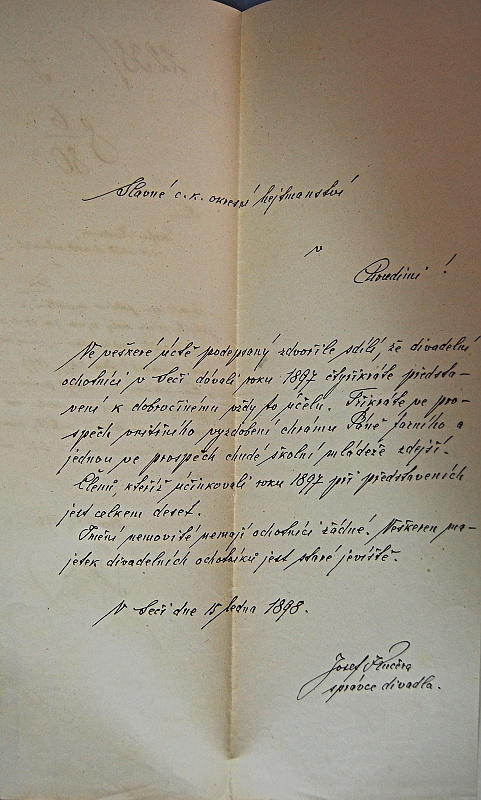 Slavné c. k. okresní hejtmanství
v
Chrudimi!
Ve veškeré úctě podepsaný zdvořile sdílí, že divadelní
ochotníci v Seči dávali roku 1897 čtyřikráte předsta-
vení k dobročinému vždy to účelu. Třikráte ve pro-
spěch vnitřního vyzdobení chrámu Páně farního a
jednou ve prospěch chudé školní mládeže zdejší.
Členů, kteříž účinkovali roku 1897 při představeních
jest celkem deset.
Jmění nemovité nemají ochotníci žádné. Veškeren ma-
jetek divadelních ochotníků jest staré jeviště.
V Seči dne 15 ledna 1898.
Josef
správce divadla.